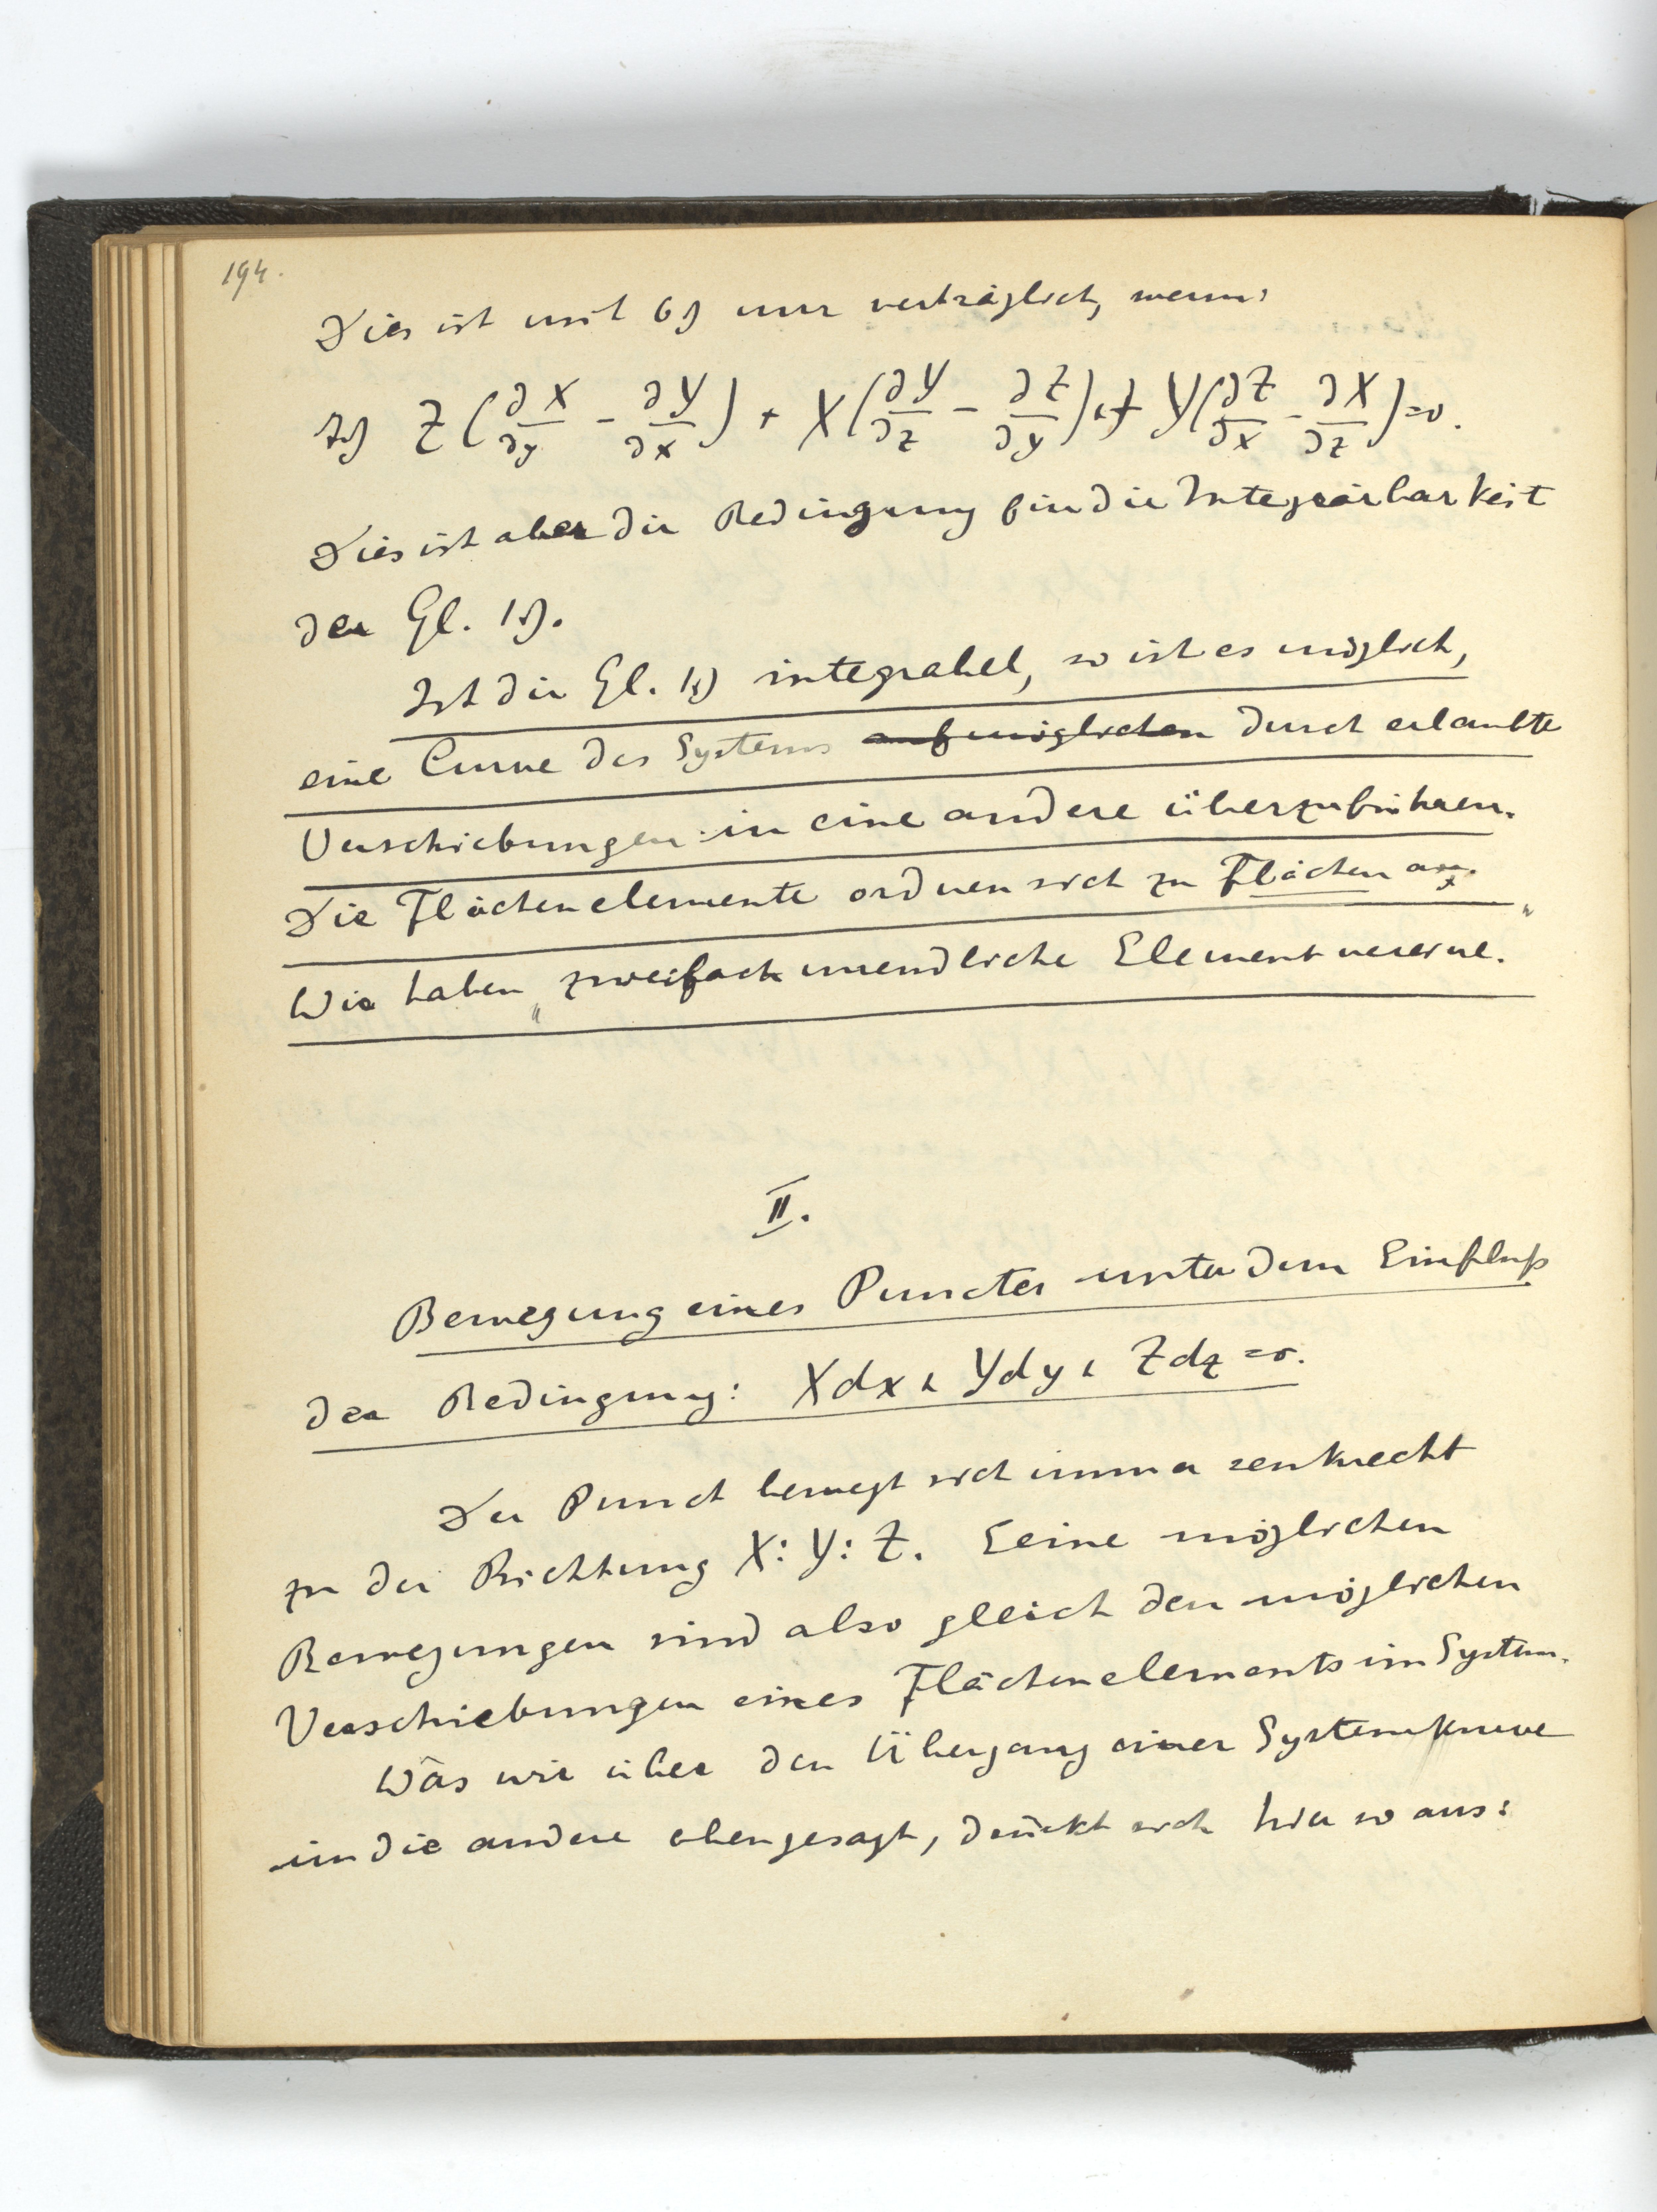 194.
Dies ist mit 6) nur verträglich, wenn:
7) Z(∂X/∂y - ∂Y/∂x) + X(∂Y/∂z - ∂Z/∂y) + Y(∂Z/∂x - ∂X/∂z) = 0.
Dies ist aber die Bedingung für die Integrirbarkeit
der Gl. 1).
Ist die Gl. 1) integrabel, so ist es möglich,
eine Curve des Systems auf möglichen durch erlaubte
Verschiebungen in eine andere überzuführen.
Die Flächenelemente ordnen sich zu Flächen an.
Wir haben „zweifach unendliche Elementvereine."
II.
Bewegung eines Punctes unter dem Einfluß
der Bedingung: Xdx + Ydy + Zdz = 0.
Der Punct bewegt sich immer senkrecht
zu der Richtung X:Y:Z. Seine möglichen
Bewegungen sind also gleich den möglichen
Verschiebungen eines Flächenelements im System.
Was wir über den Übergang einer Systemkurve
in die andere oben gesagt, drückt sich hier so aus: